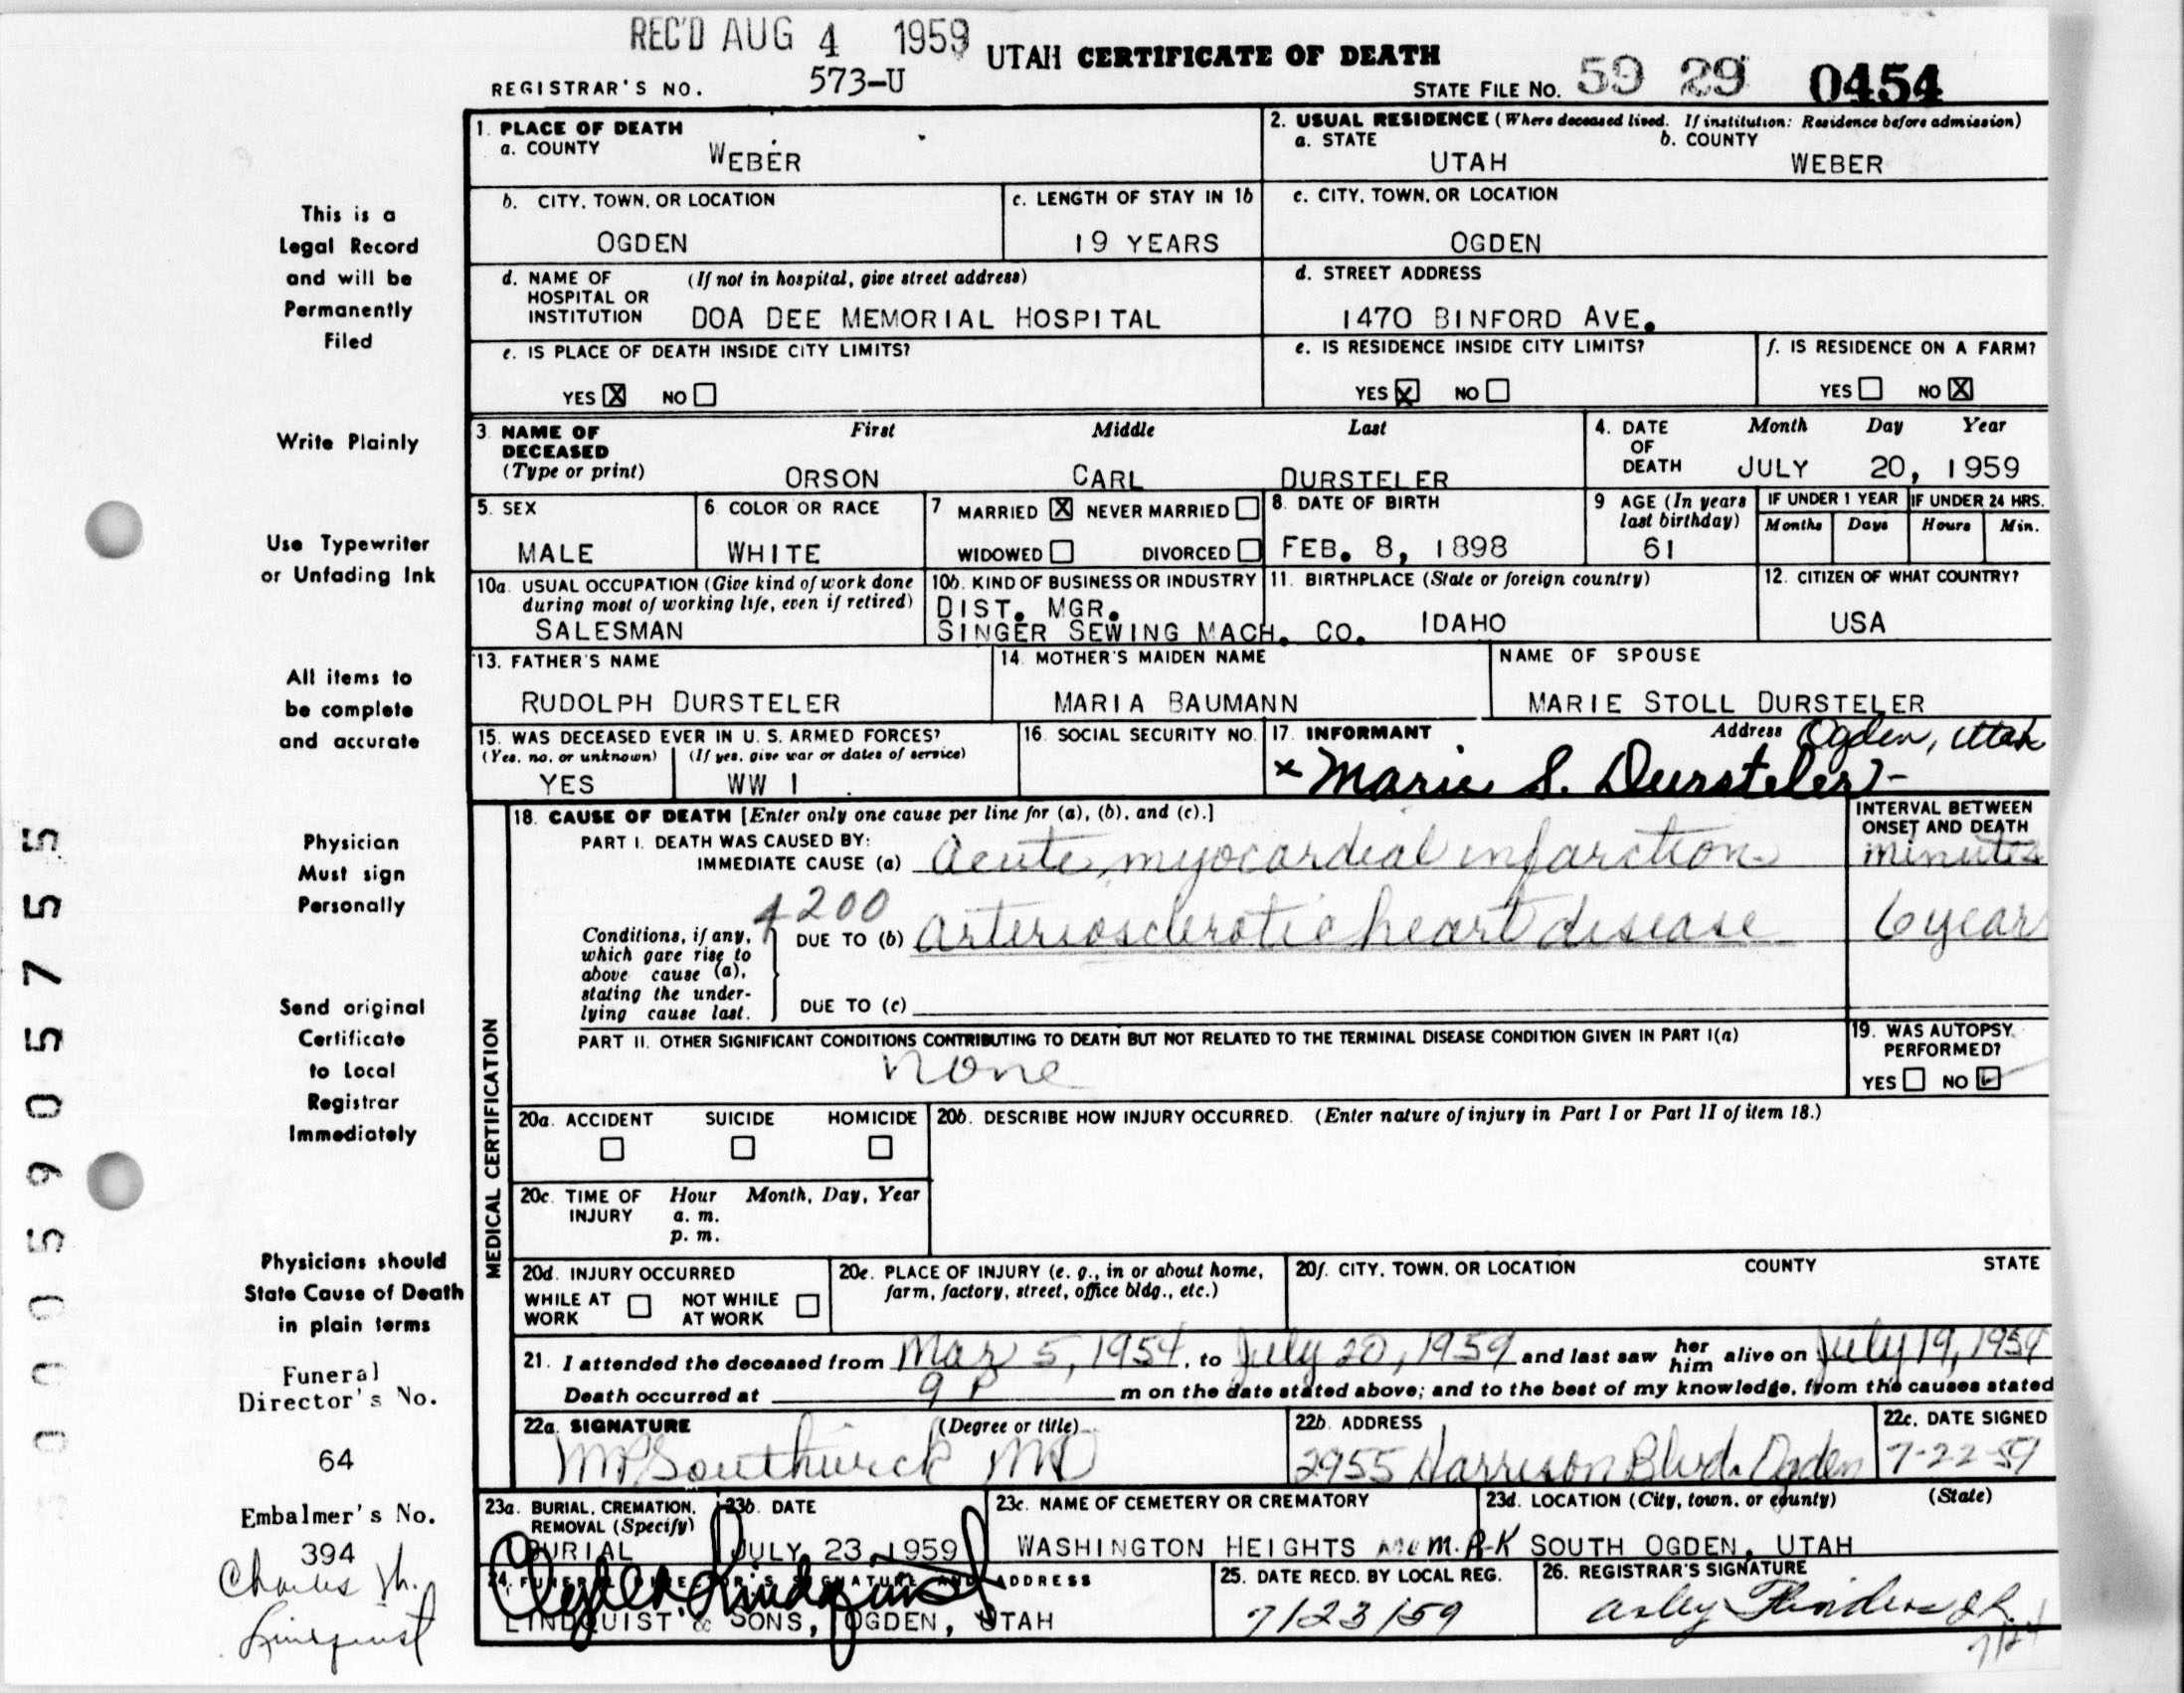 REC'D AUG 4 1959
UTAH CERTIFICATE OF DEATH
REGISTRAR'S NO. 573-U
STATE FILE NO. 59 29 0454
This is a
Legal Record
and will be
Permanently
Filed
Write Plainly
Use Typewriter
or Unfading Ink
All items to
be complete
and accurate
Physician
Must sign
Personally
Send original
Certificate
to Local
Registrar
Immediately
Physicians should
State Cause of Death
in plain terms
Funeral
Director's No.
64
Embalmer's No.
394
Charles H.
Lindquist
1. PLACE OF DEATH
a. COUNTY WEBER
2. USUAL RESIDENCE (Where deceased lived. If institution: Residence before admission)
a. STATE UTAH b. COUNTY WEBER
b. CITY, TOWN, OR LOCATION
OGDEN
c. LENGTH OF STAY IN 1b
19 YEARS
c. CITY, TOWN, OR LOCATION
OGDEN
d. NAME OF (If not in hospital, give street address)
HOSPITAL OR
INSTITUTION DOA DEE MEMORIAL HOSPITAL
d. STREET ADDRESS
1470 BINFORD AVE.
e. IS PLACE OF DEATH INSIDE CITY LIMITS?
YES X NO
e. IS RESIDENCE INSIDE CITY LIMITS?
YES X NO
f. IS RESIDENCE ON A FARM?
YES NO X
3. NAME OF DECEASED (Type or print)
First Middle Last
ORSON CARL DURSTELER
4. DATE OF DEATH
Month Day Year
JULY 20, 1959
5. SEX
MALE
6. COLOR OR RACE
WHITE
7 MARRIED X NEVER MARRIED
WIDOWED DIVORCED
8. DATE OF BIRTH
FEB. 8, 1898
9 AGE (In years last birthday)
61
IF UNDER 1 YEAR
Months Days
IF UNDER 24 HRS.
Hours Min.
10a. USUAL OCCUPATION (Give kind of work done
during most of working life, even if retired)
SALESMAN
10b. KIND OF BUSINESS OR INDUSTRY
DIST. MGR.
SINGER SEWING MACH. CO.
11. BIRTHPLACE (State or foreign country)
IDAHO
12. CITIZEN OF WHAT COUNTRY?
USA
13. FATHER'S NAME
RUDOLPH DURSTELER
14. MOTHER'S MAIDEN NAME
MARIA BAUMANN
NAME OF SPOUSE
MARIE STOLL DURSTELER
15. WAS DECEASED EVER IN U. S. ARMED FORCES?
(Yes, no, or unknown) (If yes, give war or dates of service)
YES WW I
16. SOCIAL SECURITY NO.
17. INFORMANT Address Ogden, Utah
x Marie S. Dursteler
MEDICAL CERTIFICATION
18. CAUSE OF DEATH [Enter only one cause per line for (a), (b), and (c).]
INTERVAL BETWEEN
ONSET AND DEATH
PART I. DEATH WAS CAUSED BY:
IMMEDIATE CAUSE (a) acute myocardial infarction minutes
4200
Conditions, if any,
which gave rise to
above cause (a),
stating the under-
lying cause last.
DUE TO (b) arteriosclerotic heart disease 6 year
DUE TO (c)
PART II. OTHER SIGNIFICANT CONDITIONS CONTRIBUTING TO DEATH BUT NOT RELATED TO THE TERMINAL DISEASE CONDITION GIVEN IN PART I(a)
none
19. WAS AUTOPSY
PERFORMED?
YES NO
20a. ACCIDENT SUICIDE HOMICIDE
20b. DESCRIBE HOW INJURY OCCURRED. (Enter nature of injury in Part I or Part II of item 18.)
20c. TIME OF INJURY
Hour Month, Day, Year
a. m.
p. m.
20d. INJURY OCCURRED
WHILE AT WORK NOT WHILE AT WORK
20e. PLACE OF INJURY (e. g., in or about home,
farm, factory, street, office bldg., etc.)
20f. CITY, TOWN, OR LOCATION COUNTY STATE
21. I attended the deceased from Mar 5, 1954, to July 20, 1959 and last saw her him alive on July 19, 1959
Death occurred at 9 P m on the date stated above; and to the best of my knowledge, from the causes stated
22a. SIGNATURE (Degree or title)
Southwick MD
22b. ADDRESS
2955 Harrison Blvd. Ogden
22c. DATE SIGNED
7-22-59
23a. BURIAL, CREMATION,
REMOVAL (Specify)
BURIAL
23b. DATE
JULY 23, 1959
23c. NAME OF CEMETERY OR CREMATORY
WASHINGTON HEIGHTS Mem. P-K
23d. LOCATION (City, town, or county) (State)
SOUTH OGDEN, UTAH
24. FUNERAL DIRECTOR'S SIGNATURE AND ADDRESS
LINDQUIST & SONS, OGDEN, UTAH
25. DATE RECD. BY LOCAL REG.
7/23/59
26. REGISTRAR'S SIGNATURE
Flinders JR.
30005905755